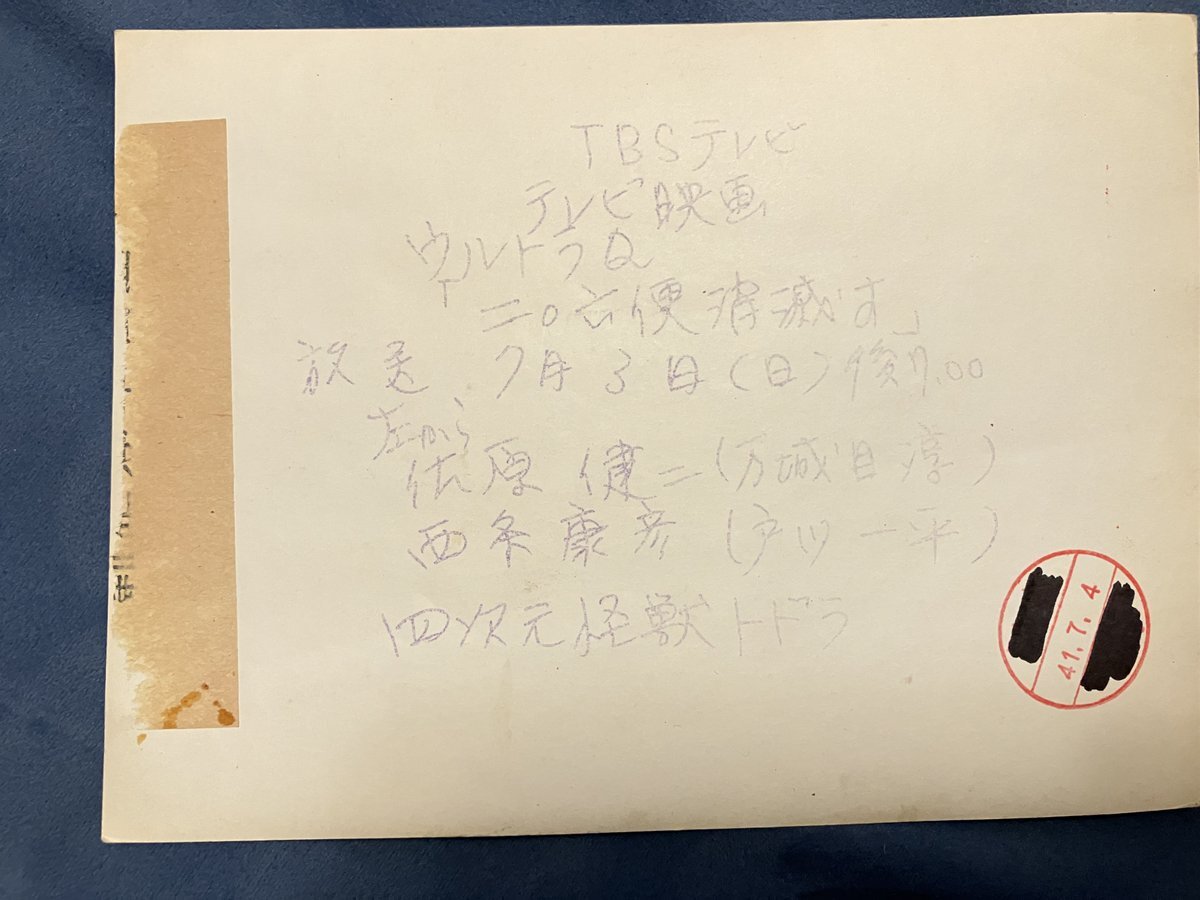 TBSテレビ
テレビ映画
ウルトラQ
「二〇六便消滅す」
放送 7月3日(日)後7.00
左から
佐原健二(万城目淳)
西条康彦(戸川一平)
四次元怪獣トドラ
41.7.4